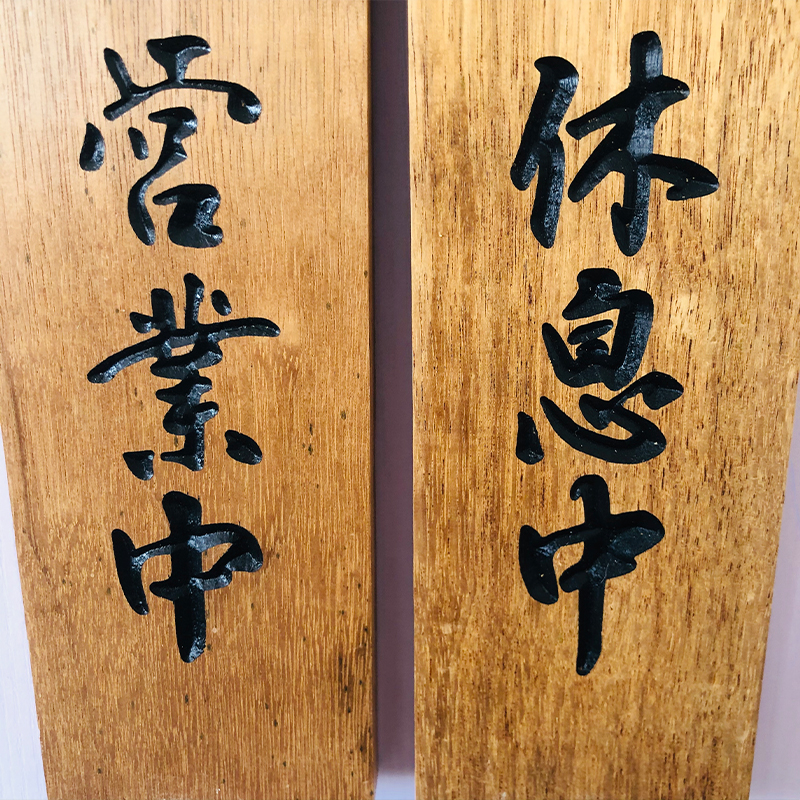 休息中
営業中